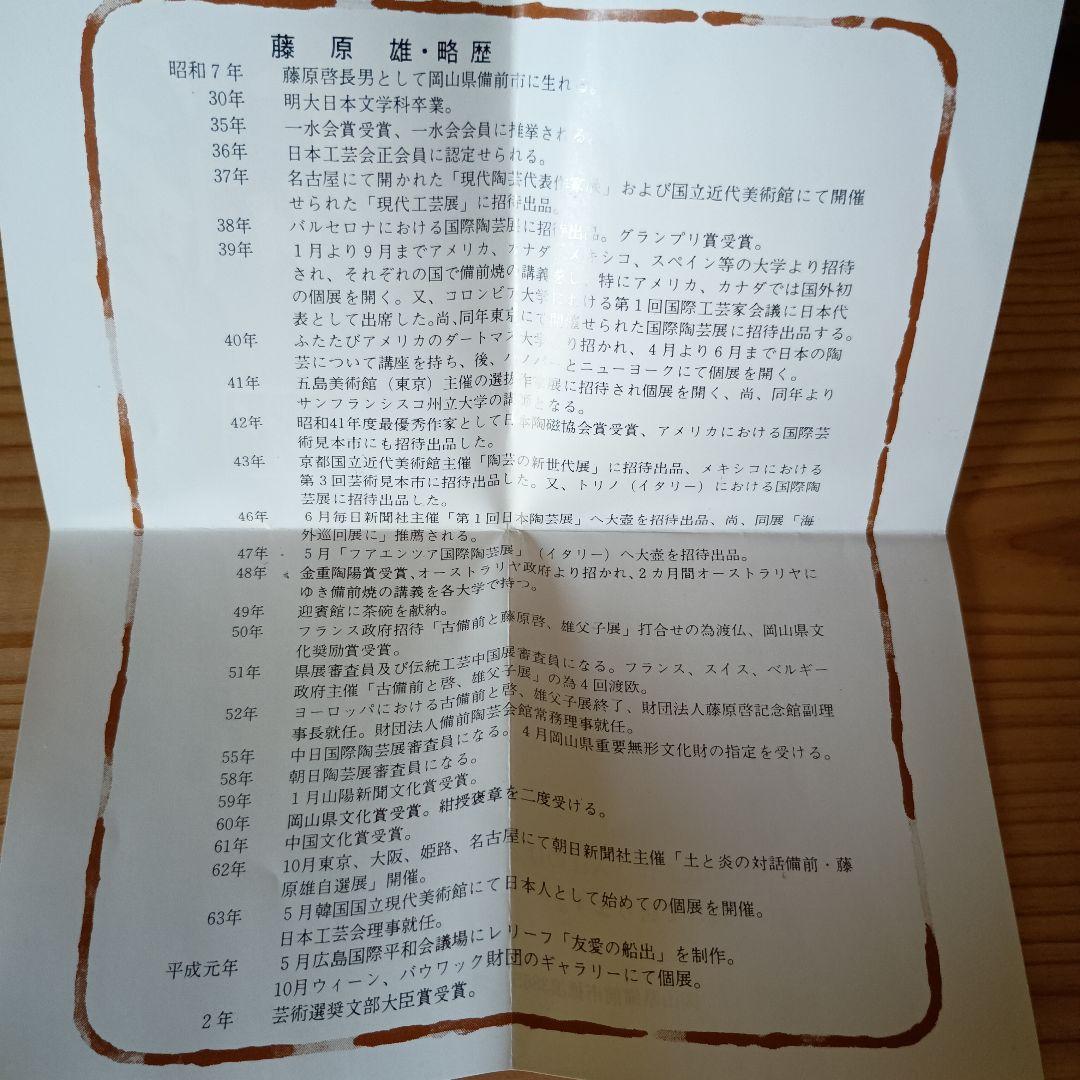 藤原 雄・略歴
昭和7年 藤原啓長男として岡山県備前市に生れる。
30年 明大日本文学科卒業。
35年 一水会賞受賞、一水会会員に推挙される。
36年 日本工芸会正会員に認定せられる。
37年 名古屋にて開かれた「現代陶芸代表作家展」および国立近代美術館にて開催
せられた「現代工芸展」に招待出品。
38年 バルセロナにおける国際陶芸展に招待出品。グランプリ賞受賞。
39年 1月より9月までアメリカ、カナダ、メキシコ、スペイン等の大学より招待
され、それぞれの国で備前焼の講義をし、特にアメリカ、カナダでは国外初
の個展を開く。又、コロンビア大学における第1回国際工芸家会議に日本代
表として出席した。尚、同年東京にて開催せられた国際陶芸展に招待出品する。
40年 ふたたびアメリカのダートマス大学より招かれ、4月より6月まで日本の陶
芸について講座を持ち、後、ハノーバーとニューヨークにて個展を開く。
41年 五島美術館(東京)主催の選抜作家展に招待され個展を開く、尚、同年より
サンフランシスコ州立大学の講師となる。
42年 昭和41年度最優秀作家として日本陶磁協会賞受賞、アメリカにおける国際芸
術見本市にも招待出品した。
43年 京都国立近代美術館主催「陶芸の新世代展」に招待出品、メキシコにおける
第3回芸術見本市に招待出品した。又、トリノ(イタリー)における国際陶
芸展に招待出品した。
46年 6月毎日新聞社主催「第1回日本陶芸展」へ大壺を招待出品、尚、同展「海
外巡回展に」推薦される。
47年 5月「フアエンツア国際陶芸展」(イタリー)へ大壺を招待出品。
48年 金重陶陽賞受賞、オーストラリヤ政府より招かれ、2カ月間オーストラリヤに
ゆき備前焼の講義を各大学で持つ。
49年 迎賓館に茶碗を献納。
50年 フランス政府招待「古備前と藤原啓、雄父子展」打合せの為渡仏、岡山県文
化奨励賞受賞。
51年 県展審査員及び伝統工芸中国展審査員になる。フランス、スイス、ベルギー
政府主催「古備前と啓、雄父子展」の為4回渡欧。
52年 ヨーロッパにおける古備前と啓、雄父子展終了、財団法人藤原啓記念館副理
事長就任。財団法人備前陶芸会館常務理事就任。
55年 中日国際陶芸展審査員になる。4月岡山県重要無形文化財の指定を受ける。
58年 朝日陶芸展審査員になる。
59年 1月山陽新聞文化賞受賞。
60年 岡山県文化賞受賞。紺授褒章を二度受ける。
61年 中国文化賞受賞。
62年 10月東京、大阪、姫路、名古屋にて朝日新聞社主催「土と炎の対話備前・藤
原雄自選展」開催。
63年 5月韓国国立現代美術館にて日本人として始めての個展を開催。
日本工芸会理事就任。
平成元年 5月広島国際平和会議場にレリーフ「友愛の船出」を制作。
10月ウィーン、バウワック財団のギャラリーにて個展。
2年 芸術選奨文部大臣賞受賞。